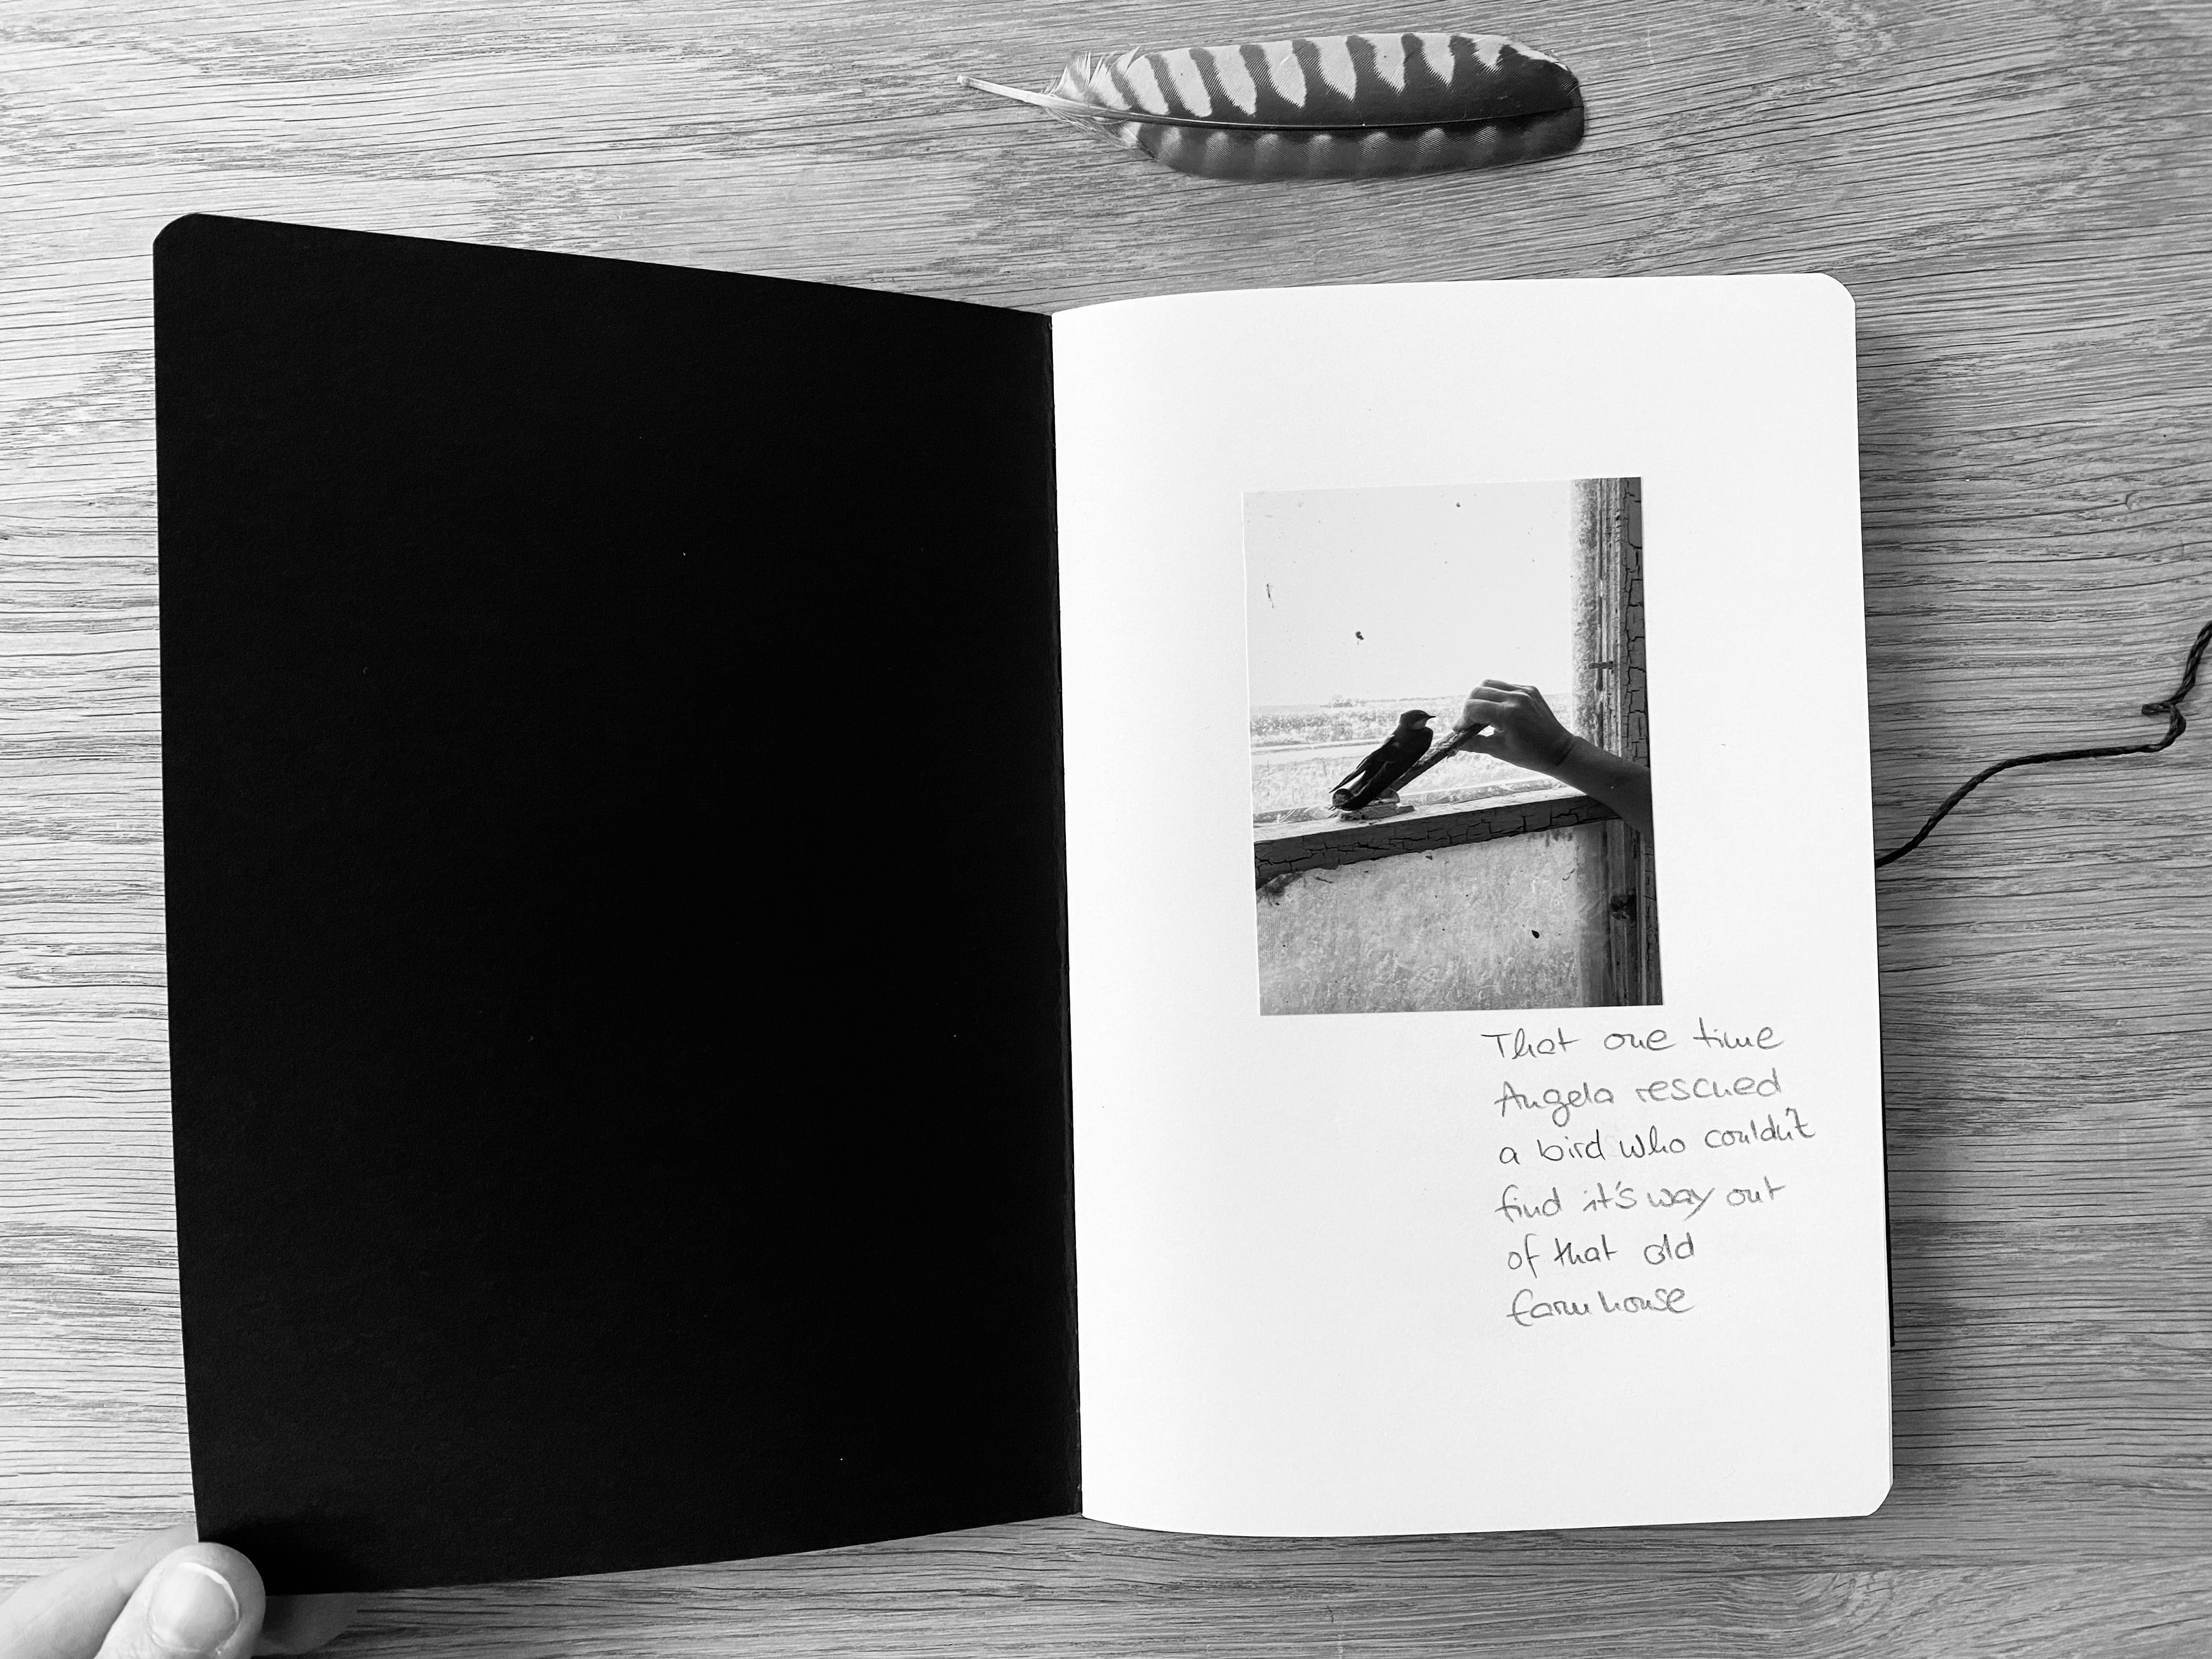 That one time
Angela rescued
a bird who couldn't
find it's way out
of that old
farmhouse